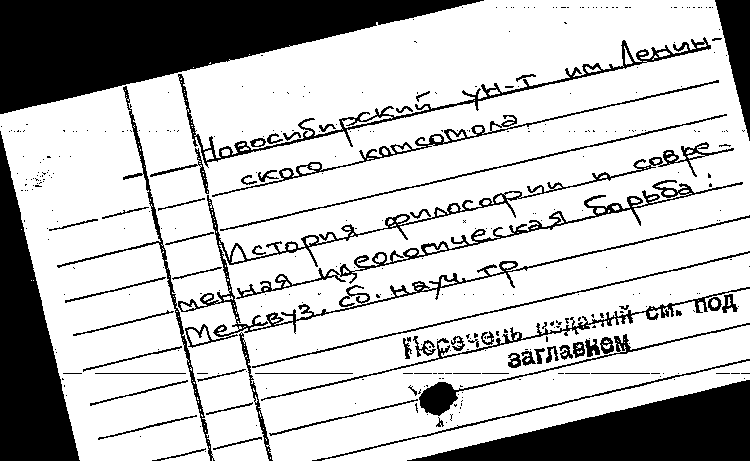 Новосибирский ун-т им. Ленин-
ского комсомола
История философии и совре-
менная идеологическая борьба:
Межвуз. сб. науч. тр.
Перечень изданий см. под
заглавием